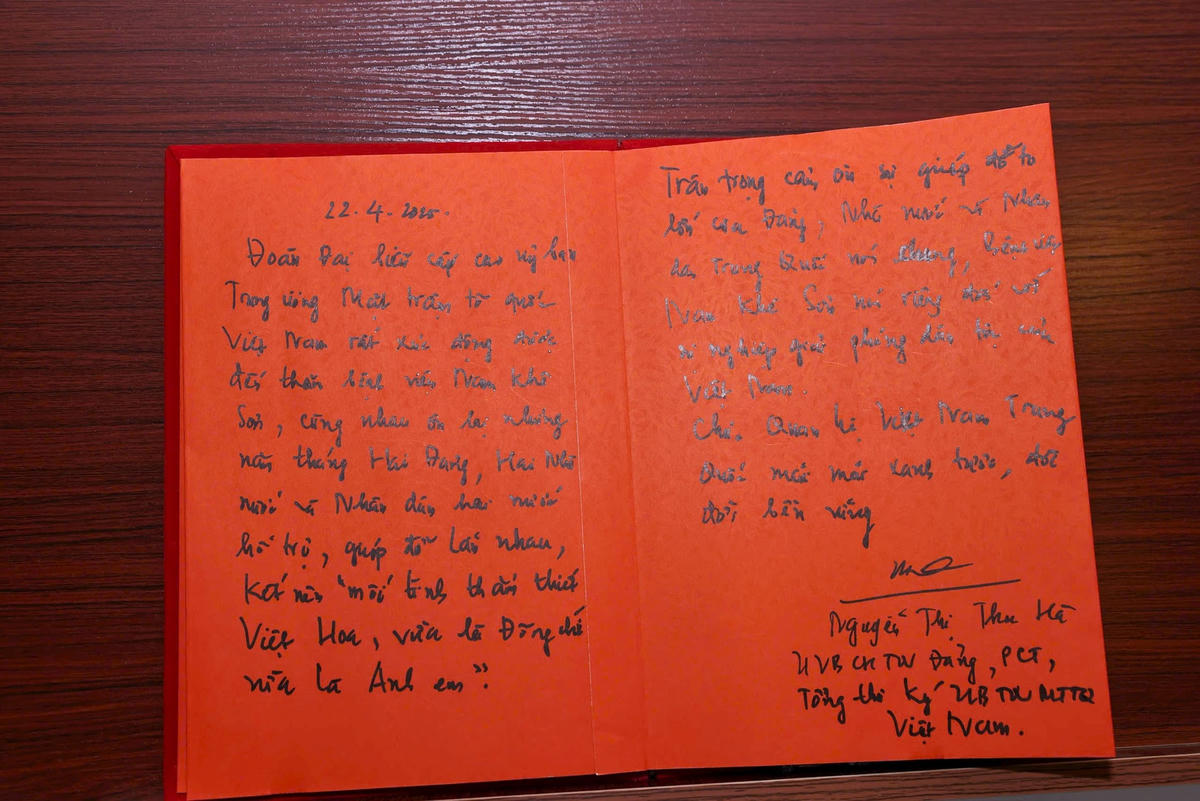 22.4.2025.
Đoàn Đại biểu cấp cao Uỷ ban
Trung ương Mặt trận tổ quốc
Việt Nam rất xúc động được
đến thăm bệnh viện Nam Khê
Sơn, cùng nhau ôn lại những
năm tháng Hai Đảng, Hai Nhà
nước và Nhân dân hai nước
hỗ trợ, giúp đỡ lẫn nhau,
Kết nên "mối tình thắm thiết
Việt Hoa, vừa là Đồng chí
vừa là Anh em".
Trân trọng cảm ơn sự giúp đỡ to
lớn của Đảng, Nhà nước và Nhân
dân Trung Quốc nói chung, bệnh viện
Nam Khê Sơn nói riêng đối với
sự nghiệp giải phóng dân tộc của
Việt Nam.
Chúc Quan hệ Việt Nam Trung
Quốc mãi mãi xanh tươi, đời
đời bền vững
Nguyễn Thị Thu Hà
UVBCHTW Đảng, PCT,
Tổng thư ký UBTW MTTQ
Việt Nam.